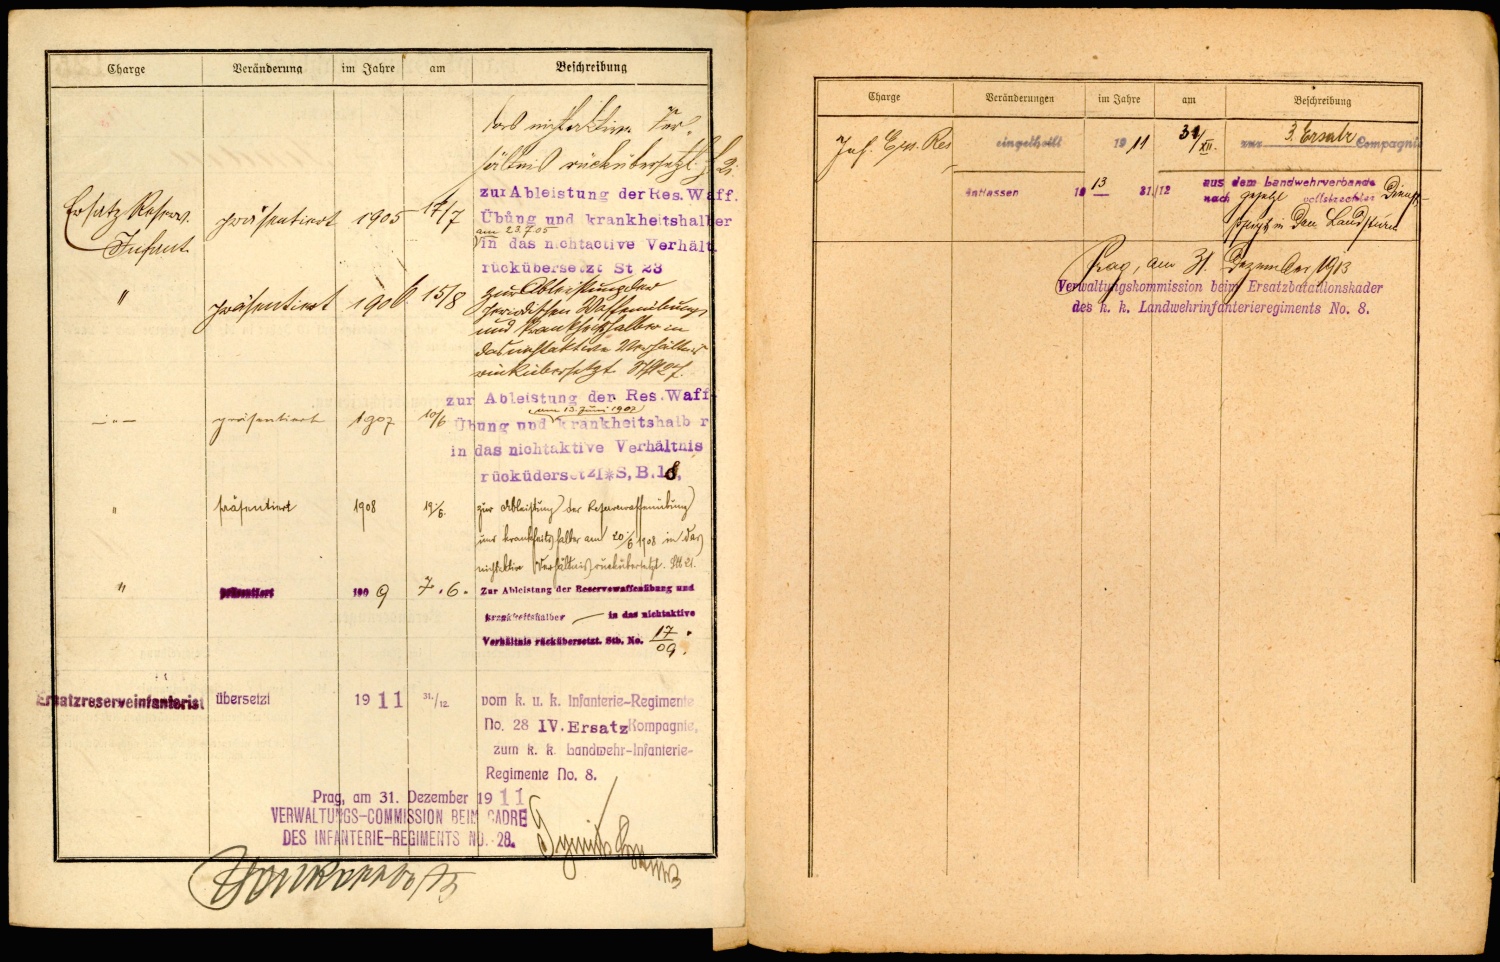 Charge Veränderung im Jahre am Beschreibung
das nichtaktive Ver-
hältnis rückübersetzt.
Ersatz Reserv. Infant. präsentiert 1905 17/7 zur Ableistung der Res. Waff.
Übung und krankheitshalber
am 23.7.05
in das nichtactive Verhält
rückübersetzt St 23
" präsentiert 1906 15/8 zur Ableistung der
periodischen Waffenübung
und krankheitshalber in
das nichtaktive Verhältnis
rückübersetzt
—"— präsentiert 1907 10/6 zur Ableistung der Res. Waff
am 13. Juni 1907
Übung und krankheitshalb r
in das nichtaktive Verhältnis
rücküdersetzt*S,B.18,
" präsentiert 1908 19/6. zur Ableistung der Reservewaffenübung
und krankheitshalber am 20/6 1908 in das
nichtaktive Verhältnis rückübersetzt. Stb 21.
" präsentiert 1909 7.6. Zur Ableistung der Reservewaffenübung und
krankheitshalber — in das nichtaktive
Verhältnis rückübersetzt. Stb. No. 17/09.
Ersatzreserveinfanterist übersetzt 1911 31./12. vom k. u. k. Infanterie-Regimente
No. 28 IV. Ersatz Kompagnie,
zum k. k. Landwehr-Infanterie-
Regimente No. 8.
Prag, am 31. Dezember 1911
VERWALTUNGS-COMMISSION BEIM CADRE
DES INFANTERIE-REGIMENTS NO. 28.
Charge Veränderungen im Jahre am Beschreibung
Inf. Ers. Res eingetheilt 1911 31/XII. zur 3. Ersatz Compagnie
entlassen 1913 31./12 aus dem Landwehrverbande
nach gesetzl vollstreckter Dienst-
pflicht in den Landsturm
Prag, am 31. Dezember 1913
Verwaltungskommission beim Ersatzbataillonskader
des k. k. Landwehrinfanterieregiments No. 8.